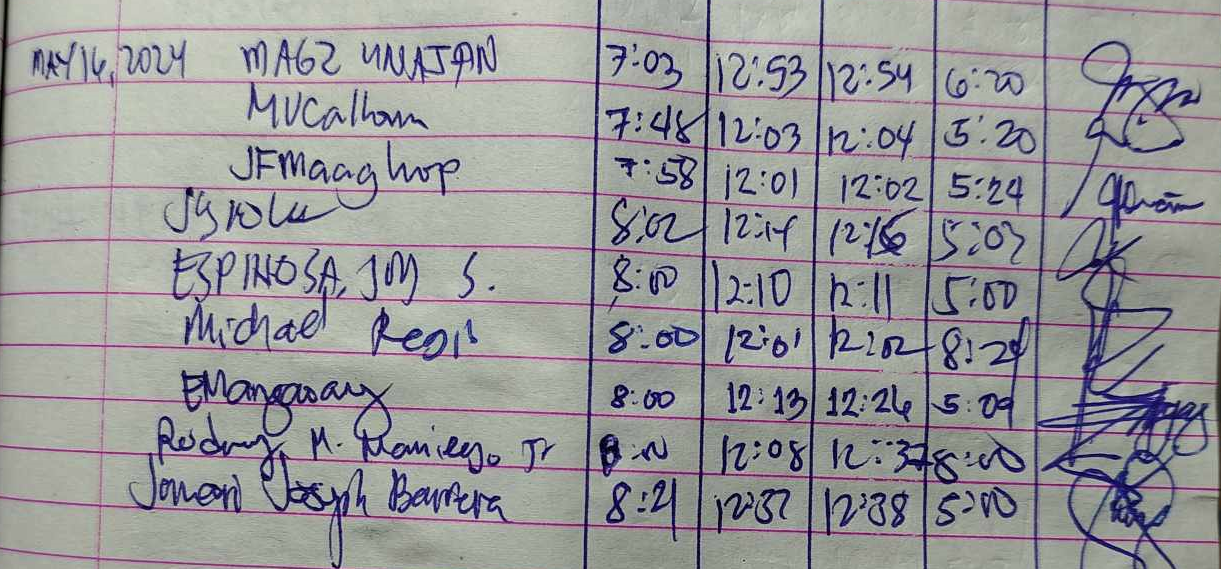 MAY 16, 2024 MAGZ UNAJAN 7:03 12:53 12:54 6:20
MVCalhom 7:48 12:03 12:04 5:20
JFMaaghop 7:58 12:01 12:02 5:24
8:02 12:14 12:16 5:03
ESPINOSA, JM S. 8:00 12:10 12:11 5:00
Michael Regis 8:00 12:01 12:02 8:29
EMangaoay 8:00 12:13 12:26 5:09
Rodney M. Maniego, Jr 12:08 12:37 8:00
Joseph Barrera 8:21 12:37 12:38 5:00